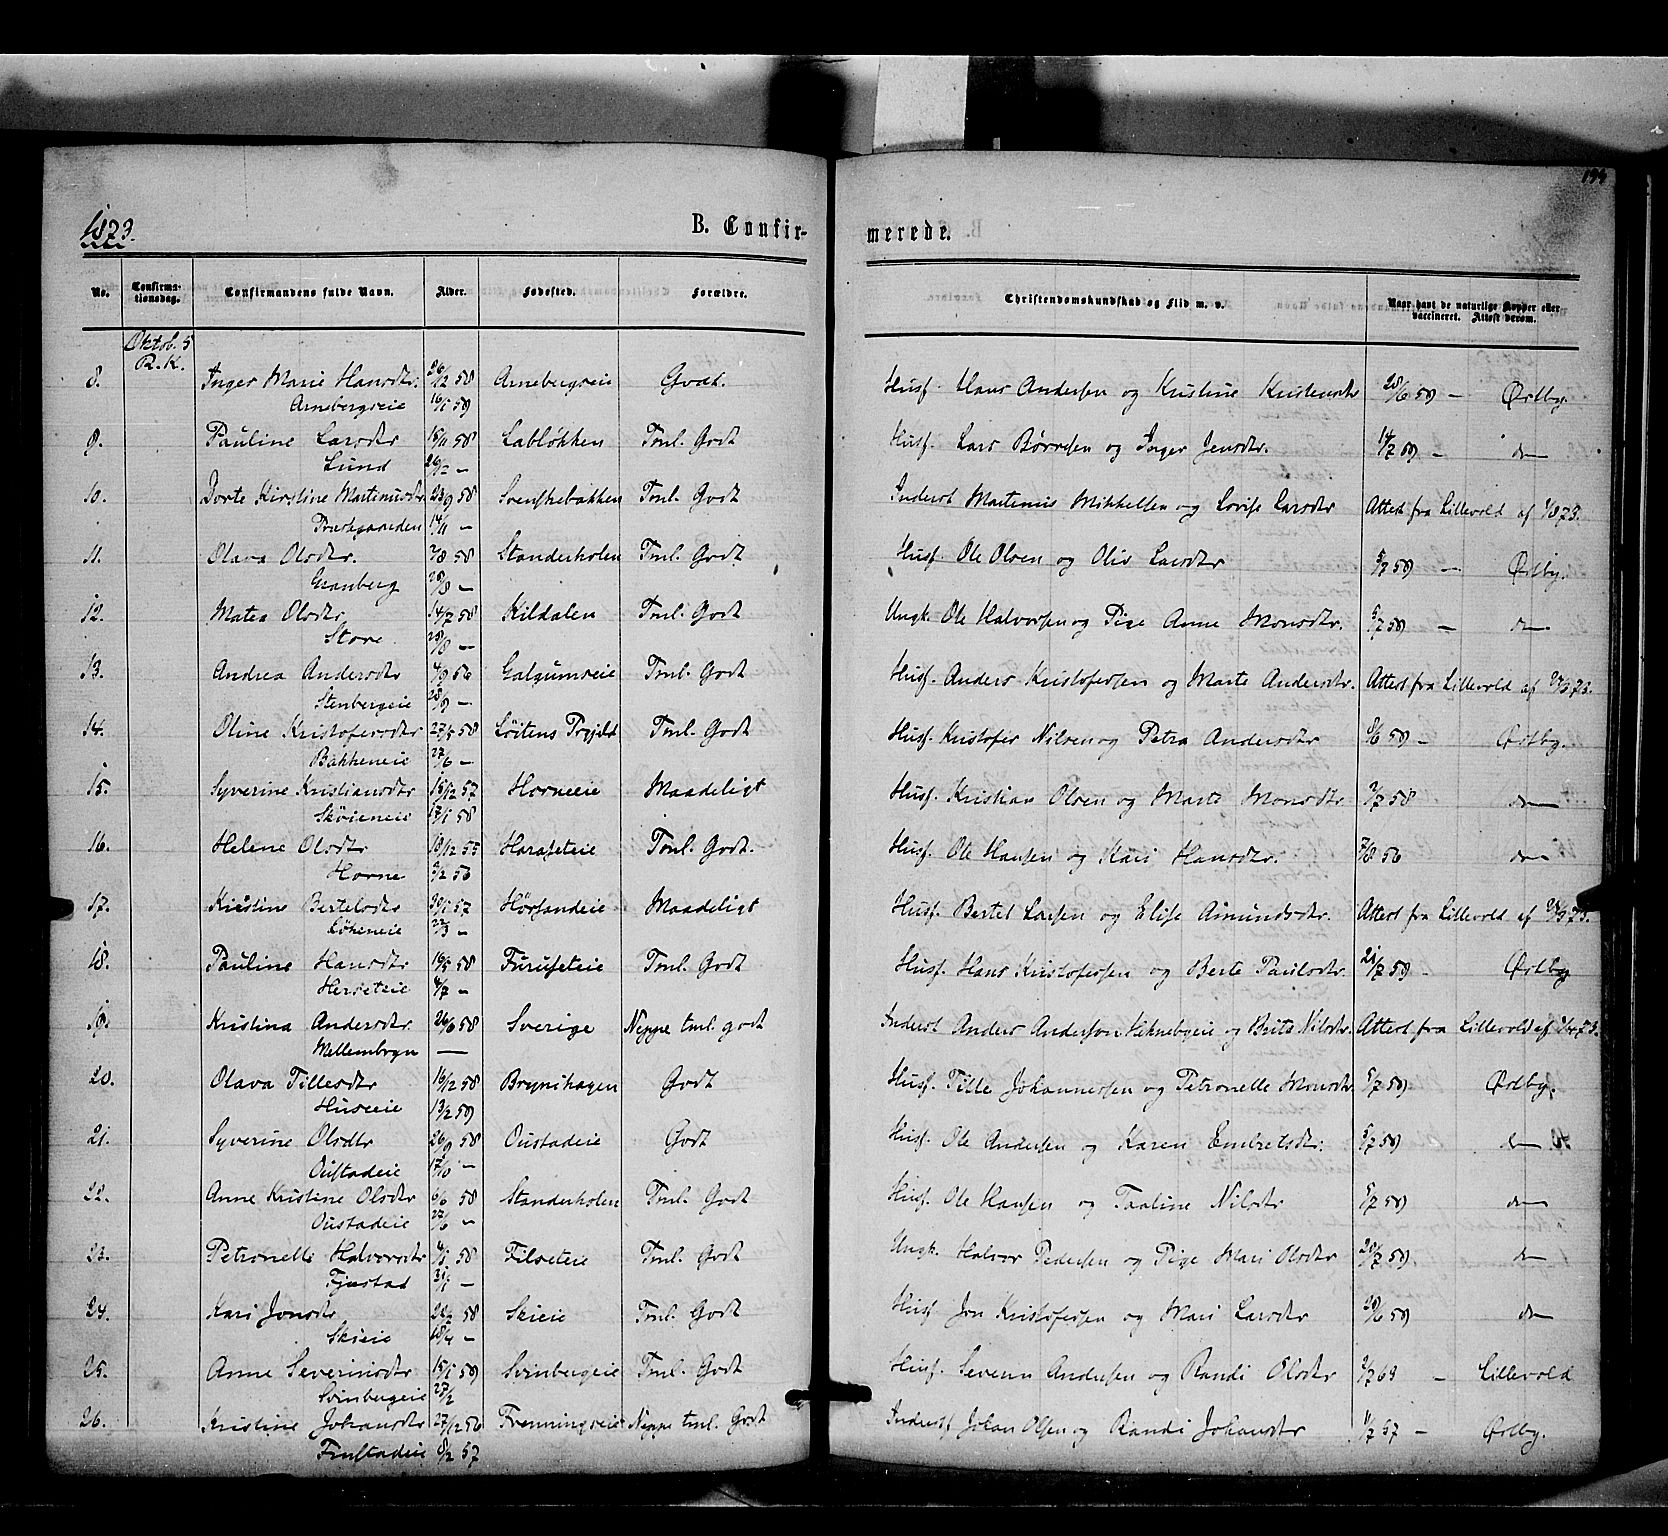 1873.
B. Confir-
merede.
No. Confirma-tionsdag. Confirmandens fulde Navn. Alder. Fødested. Forældre. Christendomskundskab og Flid m. v. Naar havt de naturlige Kopper eller vaccineret. Attest derom.
Oktob. 5
R. K.
8. Inger Marie Hansdtr. 26/12 58 Arnebergseie Godt. Husf. Hans Andersen og Kristine Kristensdtr 28/6 59 — Østby.
Arnebergseie 16/1 59
9. Pauline Larsdtr 15/11 58 Labløkken Tml. Godt Husf. Lars Børresen og Inger Jensdtr. 14/7 59 — do
Lund 26/12 —
10. Dorte Kirstine Martinusdtr 23/9 58 Svenskebakken Tml. Godt Inderst Martinius Mikkelsen og Lovise Larsdtr Attest fra Lillevold af 1/8 73.
Præstegaarden 14/11 —
11. Olava Olsdtr. 7/8 58 Standerholen Tml. Godt Husf. Ole Olsen og Oliv Larsdtr 5/7 59 — Østby.
Granberg 29/8 —
12. Matea Olsdtr 14/7 58 Kildalen Tml. Godt Ungk. Ole Halvorsen og Pige Anne Monsdtr. 5/7 59 — do
Store 29/8 —
13. Andrea Andersdtr 4/9 56 Galgumseie Tml. Godt Husf. Anders Kristofersen og Marte Andersdtr. Attest fra Lillevold af
Stenbergeie 28/9 —
14. Oline Kristofersdtr 27/5 58 Løitens Prgjeld Tml. Godt Husf. Kristofer Nilsen og Petra Andersdtr 8/6 59 — Østby.
Bakkeneie 27/6 —
15. Syverine Kristiansdtr 15/12 57 Horneeie Maadeligt Husf. Kristian Olsen og Marte Monsdtr. 2/7 58 do
Skøieneie 17/1 58
16. Helene Olsdtr 18/12 55 Haraseteie Tml. Godt. Husf. Ole Hansen og Kari Hansdtr. 7/8 56 do
Horne 3/2 56
17. Kirstine Bertelsdtr 30/1 57 Hørsandeie Maadeligt Husf. Bertel Larsen og Elise Amundsdtr. Attest fra Lillevold af
Løkeneie 22/3 —
18. Pauline Hansdtr 16/5 58 Furuseteie Tml. Godt Husf. Hans Kristofersen og Berte Paulsdtr. 21/7 59 — Østby
Herseteie 4/7 —
19. Kristina Andersdtr. 26/6 58 Sverige Neppe tml. godt Inderst Anders Anderson Viknebyeie og Brita Nilsdtr. Attest fra Lillevold af
Mellembyn —
20. Olava Tillesdtr 16/12 58 Brynihagen Godt Husf. Tille Johannesen og Petronelle Monsdtr 5/7 59 Østby.
Huseeie 13/2 59
21. Syverine Olsdtr 26/9 58 Oustadeie Godt Husf. Ole Andersen og Karen Embretsdtr. 5/7 59 do
Oustadeie 17/10 —
22. Anne Kristine Olsdtr 6/6 58 Standerholen Tml. Godt Husf. Ole Hansen og Taaline Nilsdtr 5/7 59 do
Oustadeie 27/6 —
23. Petronelle Halvorsdtr 4/1 58 Filseteie Tml. Godt Ungk. Halvor Pedersen og Pige Mari Olsdtr 28/7 59 do
Fjustad 31/1 —
24. Kari Jonsdtr 22/2 58 Skieie Tml. Godt Husf Jon Kristofersen og Mari Larsdtr 29/6 59 do
Skieie 18/4 —
25. Anne Severinsdtr 15/1 59 Svinbergeie Tml. Godt Husf. Severin Andersen og Randi Olsdtr 2/7 69 — Lillevold
Svinbergeie 27/2
26. Kristine Johansdtr 27/12 56 Frenningseie Neppe tml. Godt Inderst Johan Olsen og Randi Johansdtr 11/7 57 — Østby.
Finstadeie 8/2 57